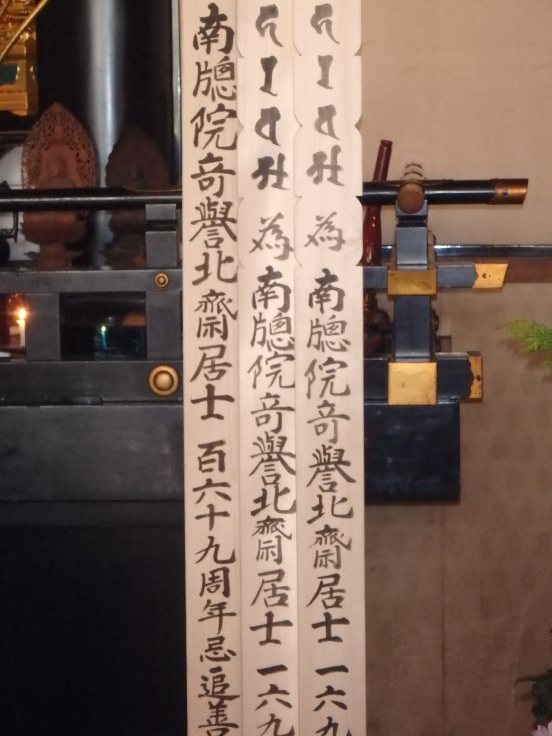 為南牕院奇譽北齋居士一六九
為南牕院奇譽北齋居士一六九
南牕院奇譽北齋居士 百六十九周年忌追善